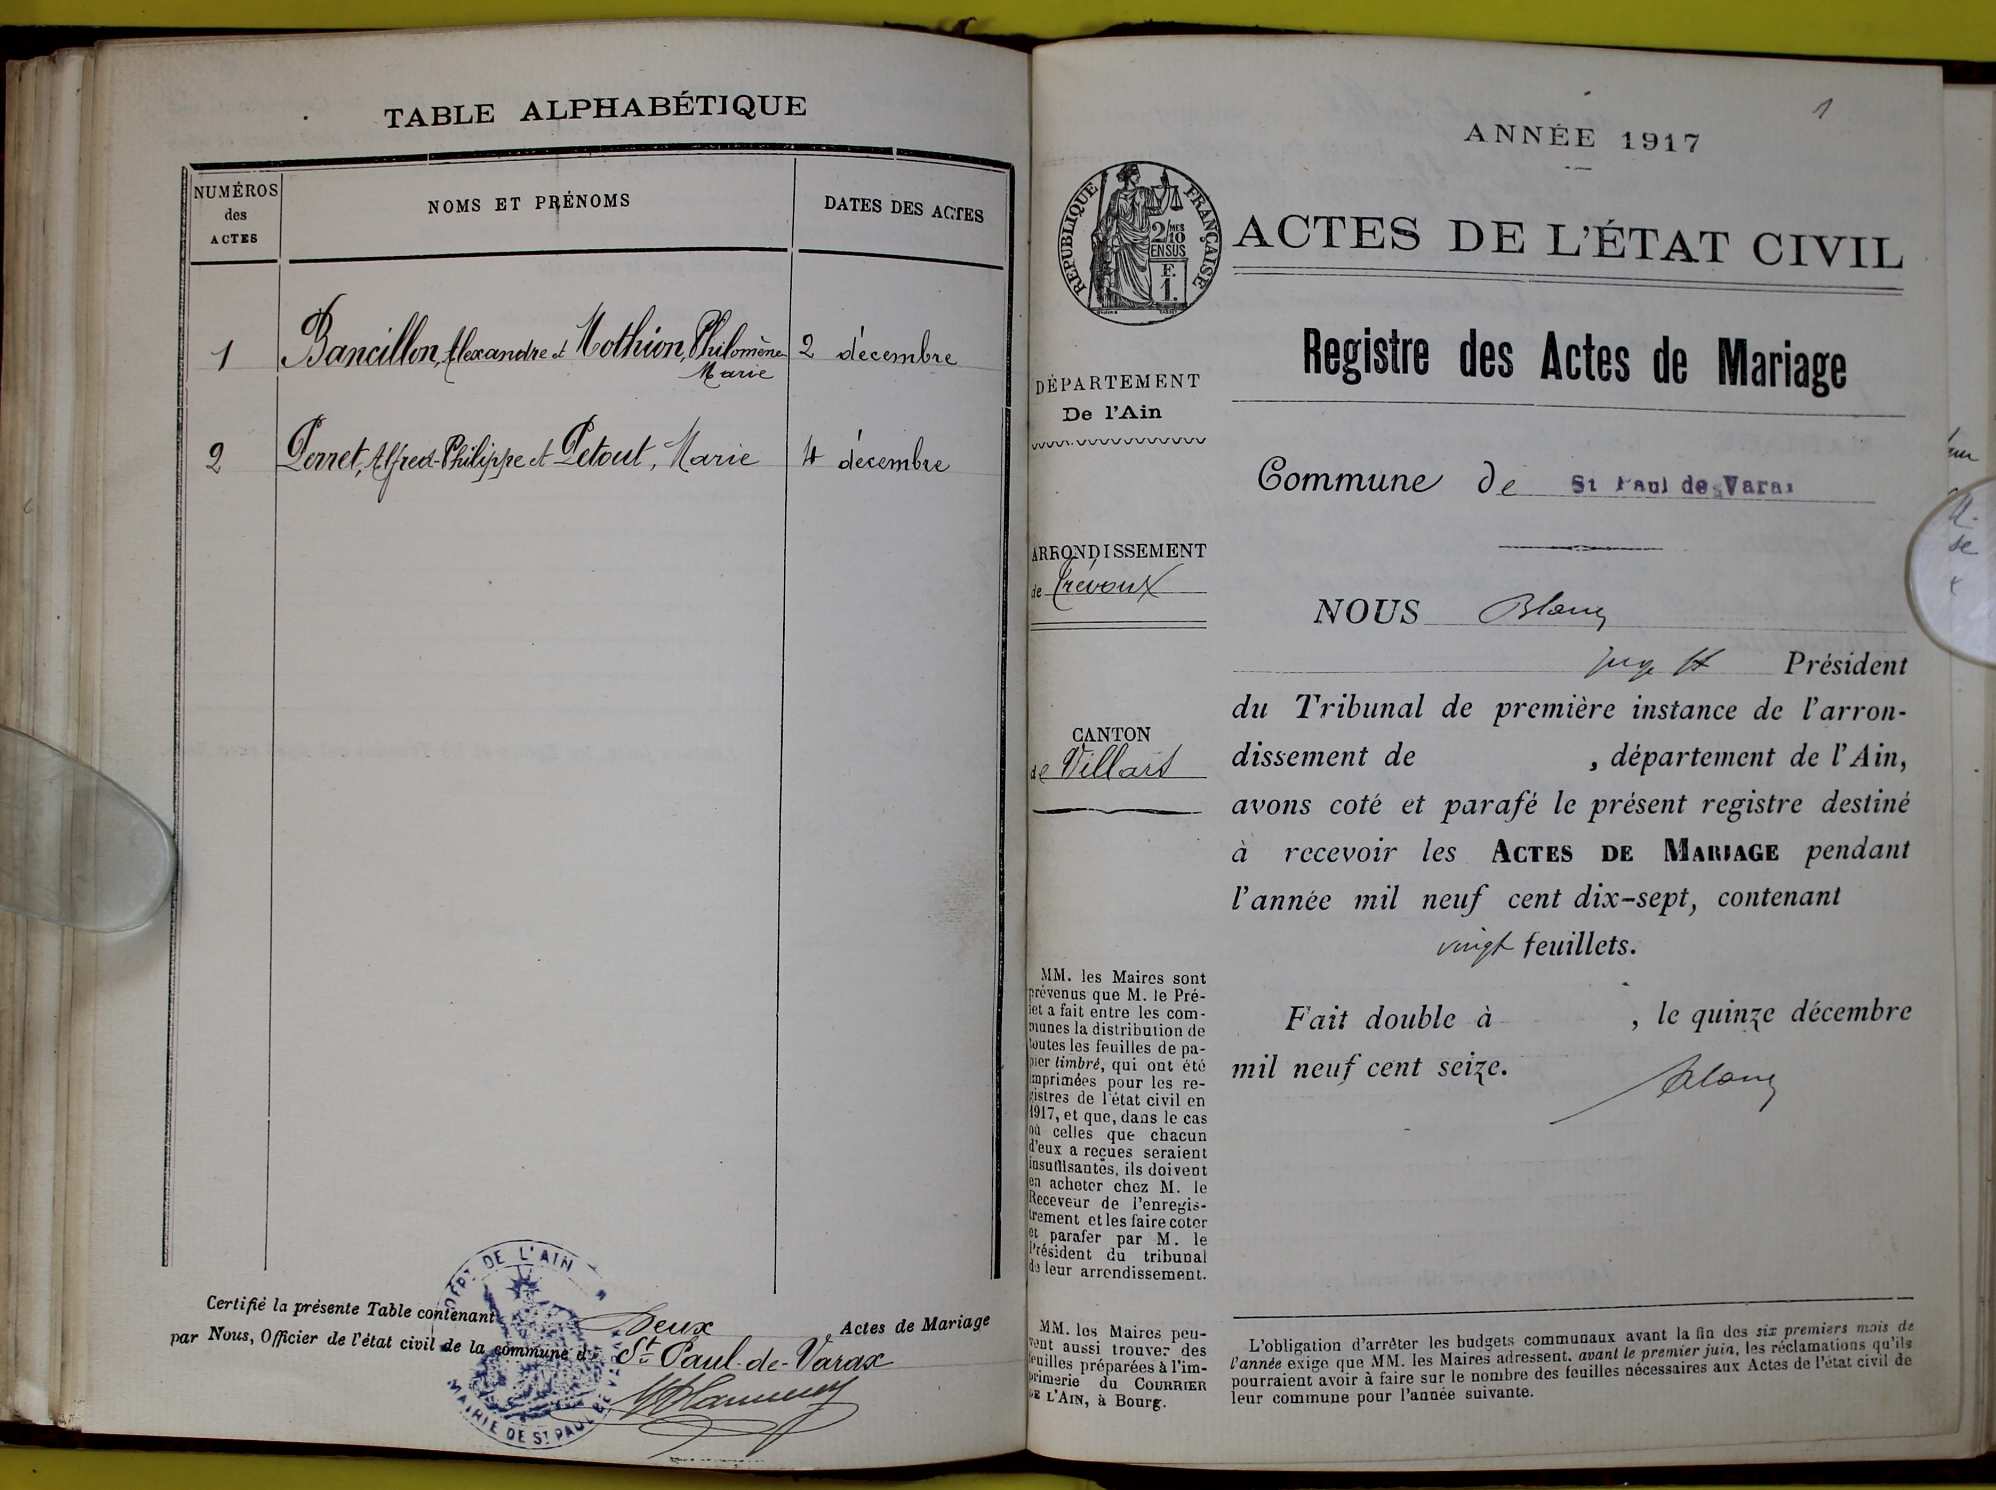 TABLE ALPHABÉTIQUE
NUMÉROS
des
ACTES
NOMS ET PRÉNOMS
DATES DES ACTES
1 Bancillon, Alexandre et Mothion, Philomène 2 décembre
Marie
2 Perret, Alfred-Philippe et Petout, Marie 4 décembre
Certifié la présente Table contenant Deux Actes de Mariage
par Nous, Officier de l'état civil de la commune de St Paul-de-Varax
DÉPT DE L'AIN
MAIRIE DE ST PAUL DE VARAX
1
ANNÉE 1917
RÉPUBLIQUE FRANÇAISE
2/10MES
EN SUS
F.
1.
ACTES DE L'ÉTAT CIVIL
Registre des Actes de Mariage
DÉPARTEMENT
De l'Ain
Commune de St Paul de Varax
ARRONDISSEMENT
de Trévoux
CANTON
de Villars
NOUS Blanc
juge Président
du Tribunal de première instance de l'arron-
dissement de , département de l'Ain,
avons coté et parafé le présent registre destiné
à recevoir les ACTES DE MARIAGE pendant
l'année mil neuf cent dix-sept, contenant
vingt feuillets.
Fait double à , le quinze décembre
mil neuf cent seize.
Blanc
MM. les Maires sont
prévenus que M. le Pré-
fet a fait entre les com-
munes la distribution de
toutes les feuilles de pa-
pier timbré, qui ont été
imprimées pour les re-
gistres de l'état civil en
1917, et que, dans le cas
où celles que chacun
d'eux a reçues seraient
insuffisantes, ils doivent
en acheter chez M. le
Receveur de l'enregis-
trement et les faire coter
et parafer par M. le
Président du tribunal
de leur arrondissement.
MM. les Maires peu-
vent aussi trouver des
feuilles préparées à l'im-
primerie du COURRIER
DE L'AIN, à Bourg.
L'obligation d'arrêter les budgets communaux avant la fin des six premiers mois de
l'année exige que MM. les Maires adressent, avant le premier juin, les réclamations qu'ils
pourraient avoir à faire sur le nombre des feuilles nécessaires aux Actes de l'état civil de
leur commune pour l'année suivante.